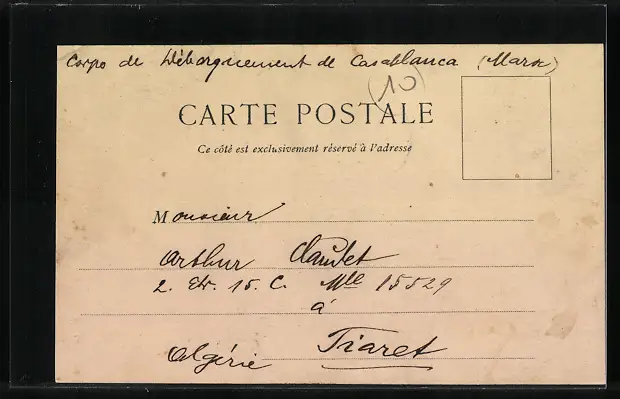 Corps de Débarquement de Casablanca (Maroc)
(10)
CARTE POSTALE
Ce côté est exclusivement réservé à l'adresse
Monsieur
Arthur
2. Etr. 15. C. Mle 15529
à
Tiaret
Algérie